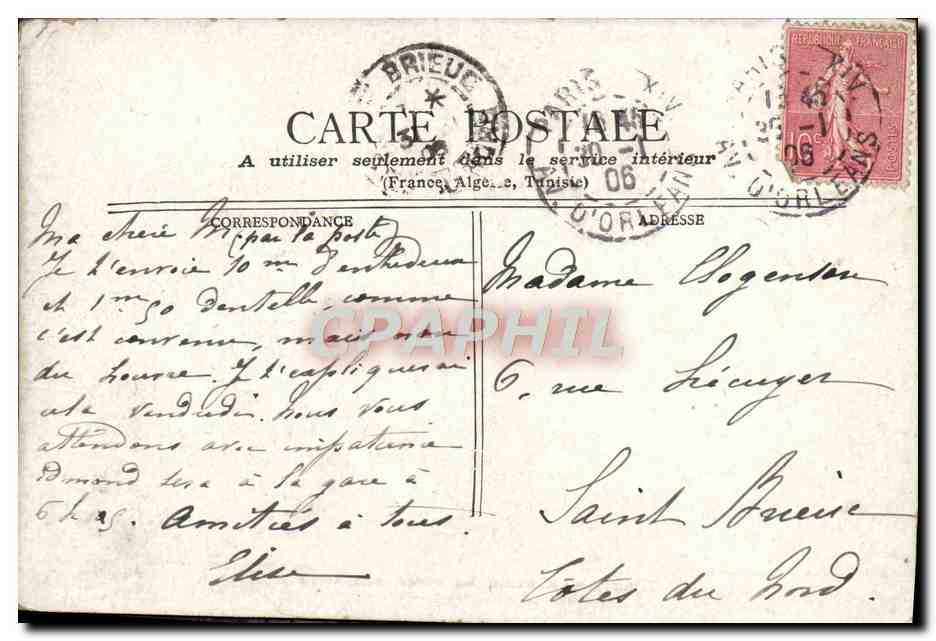 CARTE POSTALE
A utiliser seulement dans le service intérieur
(France, Algérie, Tunisie)
CORRESPONDANCE
ADRESSE
REPUBLIQUE FRANÇAISE
10c
POSTES
BRIEUC
PARIS XIV
30 -1
06
AV. D'ORLEANS
PARIS XIV
30 -1
06
AV. D'ORLEANS
Ma chère M
(par la poste)
Je t'envoie 10 m d'entredeux
et 1m.50 dentelle comme
c'est convenu, mais non
du Louvre. Je t'expliquerai
cela vendredi. Nous vous
attendons avec impatience
Edmond sera à la gare à
6h 25. Amitiés à tous.
Elise
Madame Clogenson
6, rue Lécuyer
Saint Brieuc
Côtes du Nord.
CPAPHIL